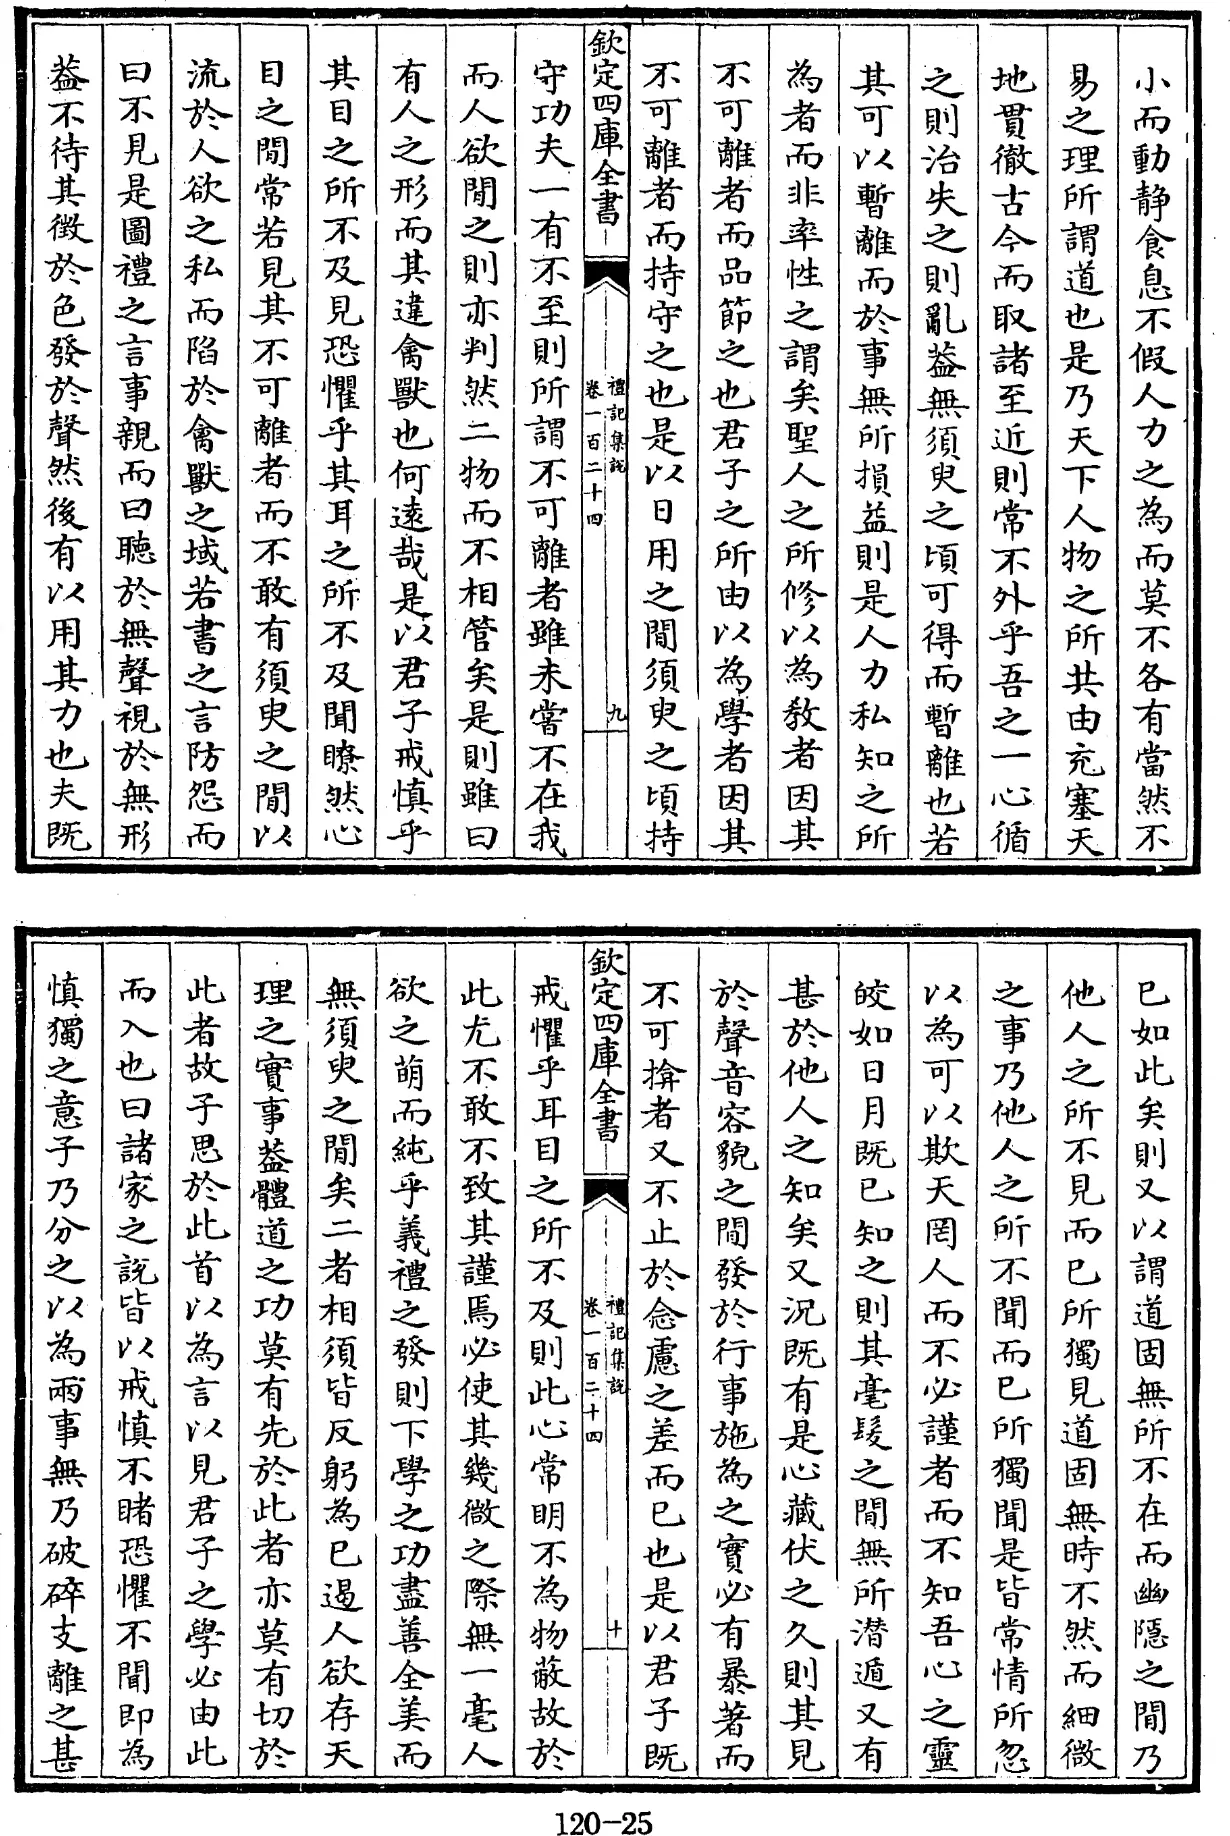 小而動静食息不假人力之為而莫不各有當然不
易之理所謂道也是乃天下人物之所共由充塞天
地貫徹古今而取諸至近則常不外乎吾之一心循
之則治失之則亂葢無須臾之頃可得而暫離也若
其可以暫離而於事無所損益則是人力私知之所
為者而非率性之謂矣聖人之所修以為教者因其
不可離者而品節之也君子之所由以為學者因其
不可離者而持守之也是以日用之間須臾之頃持
欽定四庫全書
禮記集説
卷一百二十四
九
守功夫一有不至則所謂不可離者雖未嘗不在我
而人欲間之則亦判然二物而不相管矣是則雖曰
有人之形而其違禽獸也何遠哉是以君子戒慎乎
其目之所不及見恐懼乎其耳之所不及聞瞭然心
目之間常若見其不可離者而不敢有須臾之間以
流於人欲之私而陷於禽獸之域若書之言防怨而
曰不見是圖禮之言事親而曰聽於無聲視於無形
葢不待其徴於色發於聲然後有以用其力也夫既
已如此矣則又以謂道固無所不在而幽隱之間乃
他人之所不見而已所獨見道固無時不然而細微
之事乃他人之所不聞而已所獨聞是皆常情所忽
以為可以欺天罔人而不必謹者而不知吾心之靈
皎如日月既已知之則其毫髮之間無所潜遁又有
甚於他人之知矣又況既有是心藏伏之久則其見
於聲音容貌之間發於行事施為之實必有暴著而
不可揜者又不止於念慮之差而已也是以君子既
欽定四庫全書
禮記集説
卷一百二十四
十
戒懼乎耳目之所不及則此心常明不為物蔽故於
此尤不敢不致其謹焉必使其幾微之際無一毫人
欲之萌而純乎義禮之發則下學之功盡善全美而
無須臾之間矣二者相須皆反躬為已遏人欲存天
理之實事葢體道之功莫有先於此者亦莫有切於
此者故子思於此首以為言以見君子之學必由此
而入也曰諸家之説皆以戒慎不睹恐懼不聞即為
慎獨之意子乃分之以為兩事無乃破碎支離之甚
120-25